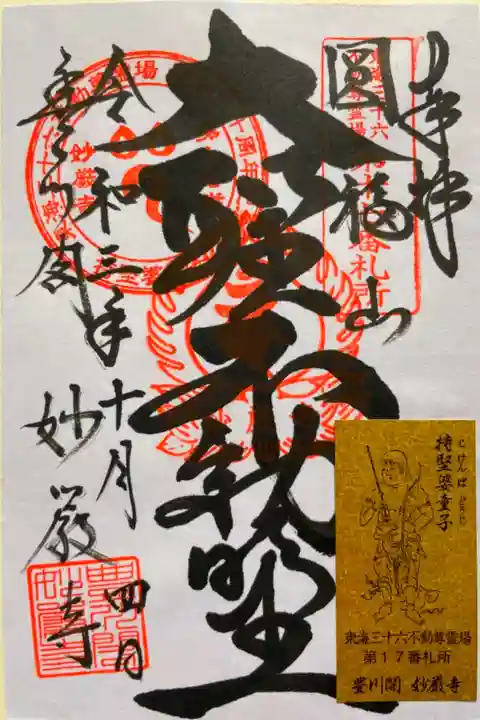 奉拝
圓福山
大聖不動明王
令和三年十月四日
豊川閣
妙厳寺
東海三十六
不動尊霊場
第十七番札所
持堅婆童子
じけんば どうじ
東海三十六不動尊霊場
第17番札所
豊川閣 妙厳寺